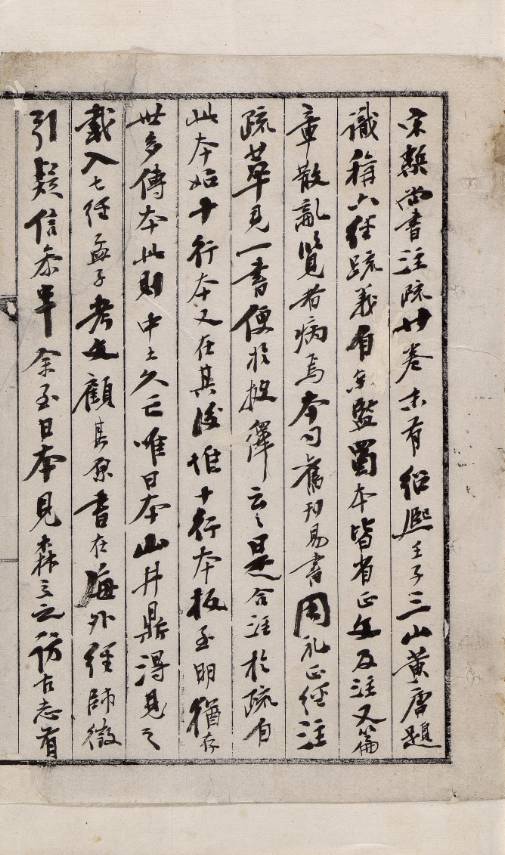 宋槧尚書注疏廿卷末有紹熙壬子三山黃唐題
識稱六經疏義自京監蜀本皆省正文及注又篇
章散亂覽者病焉本司舊刊易書周礼正經注
疏萃見一書便於披繹云々是合注於疏自
此本始十行本又在其後惟十行本板至明猶存
世多傳本此則中土久亡唯日本山井鼎得見之
載入七經孟子考文顧其原書在海外經師徵
引疑信参半余至日本見森立之訪古志有